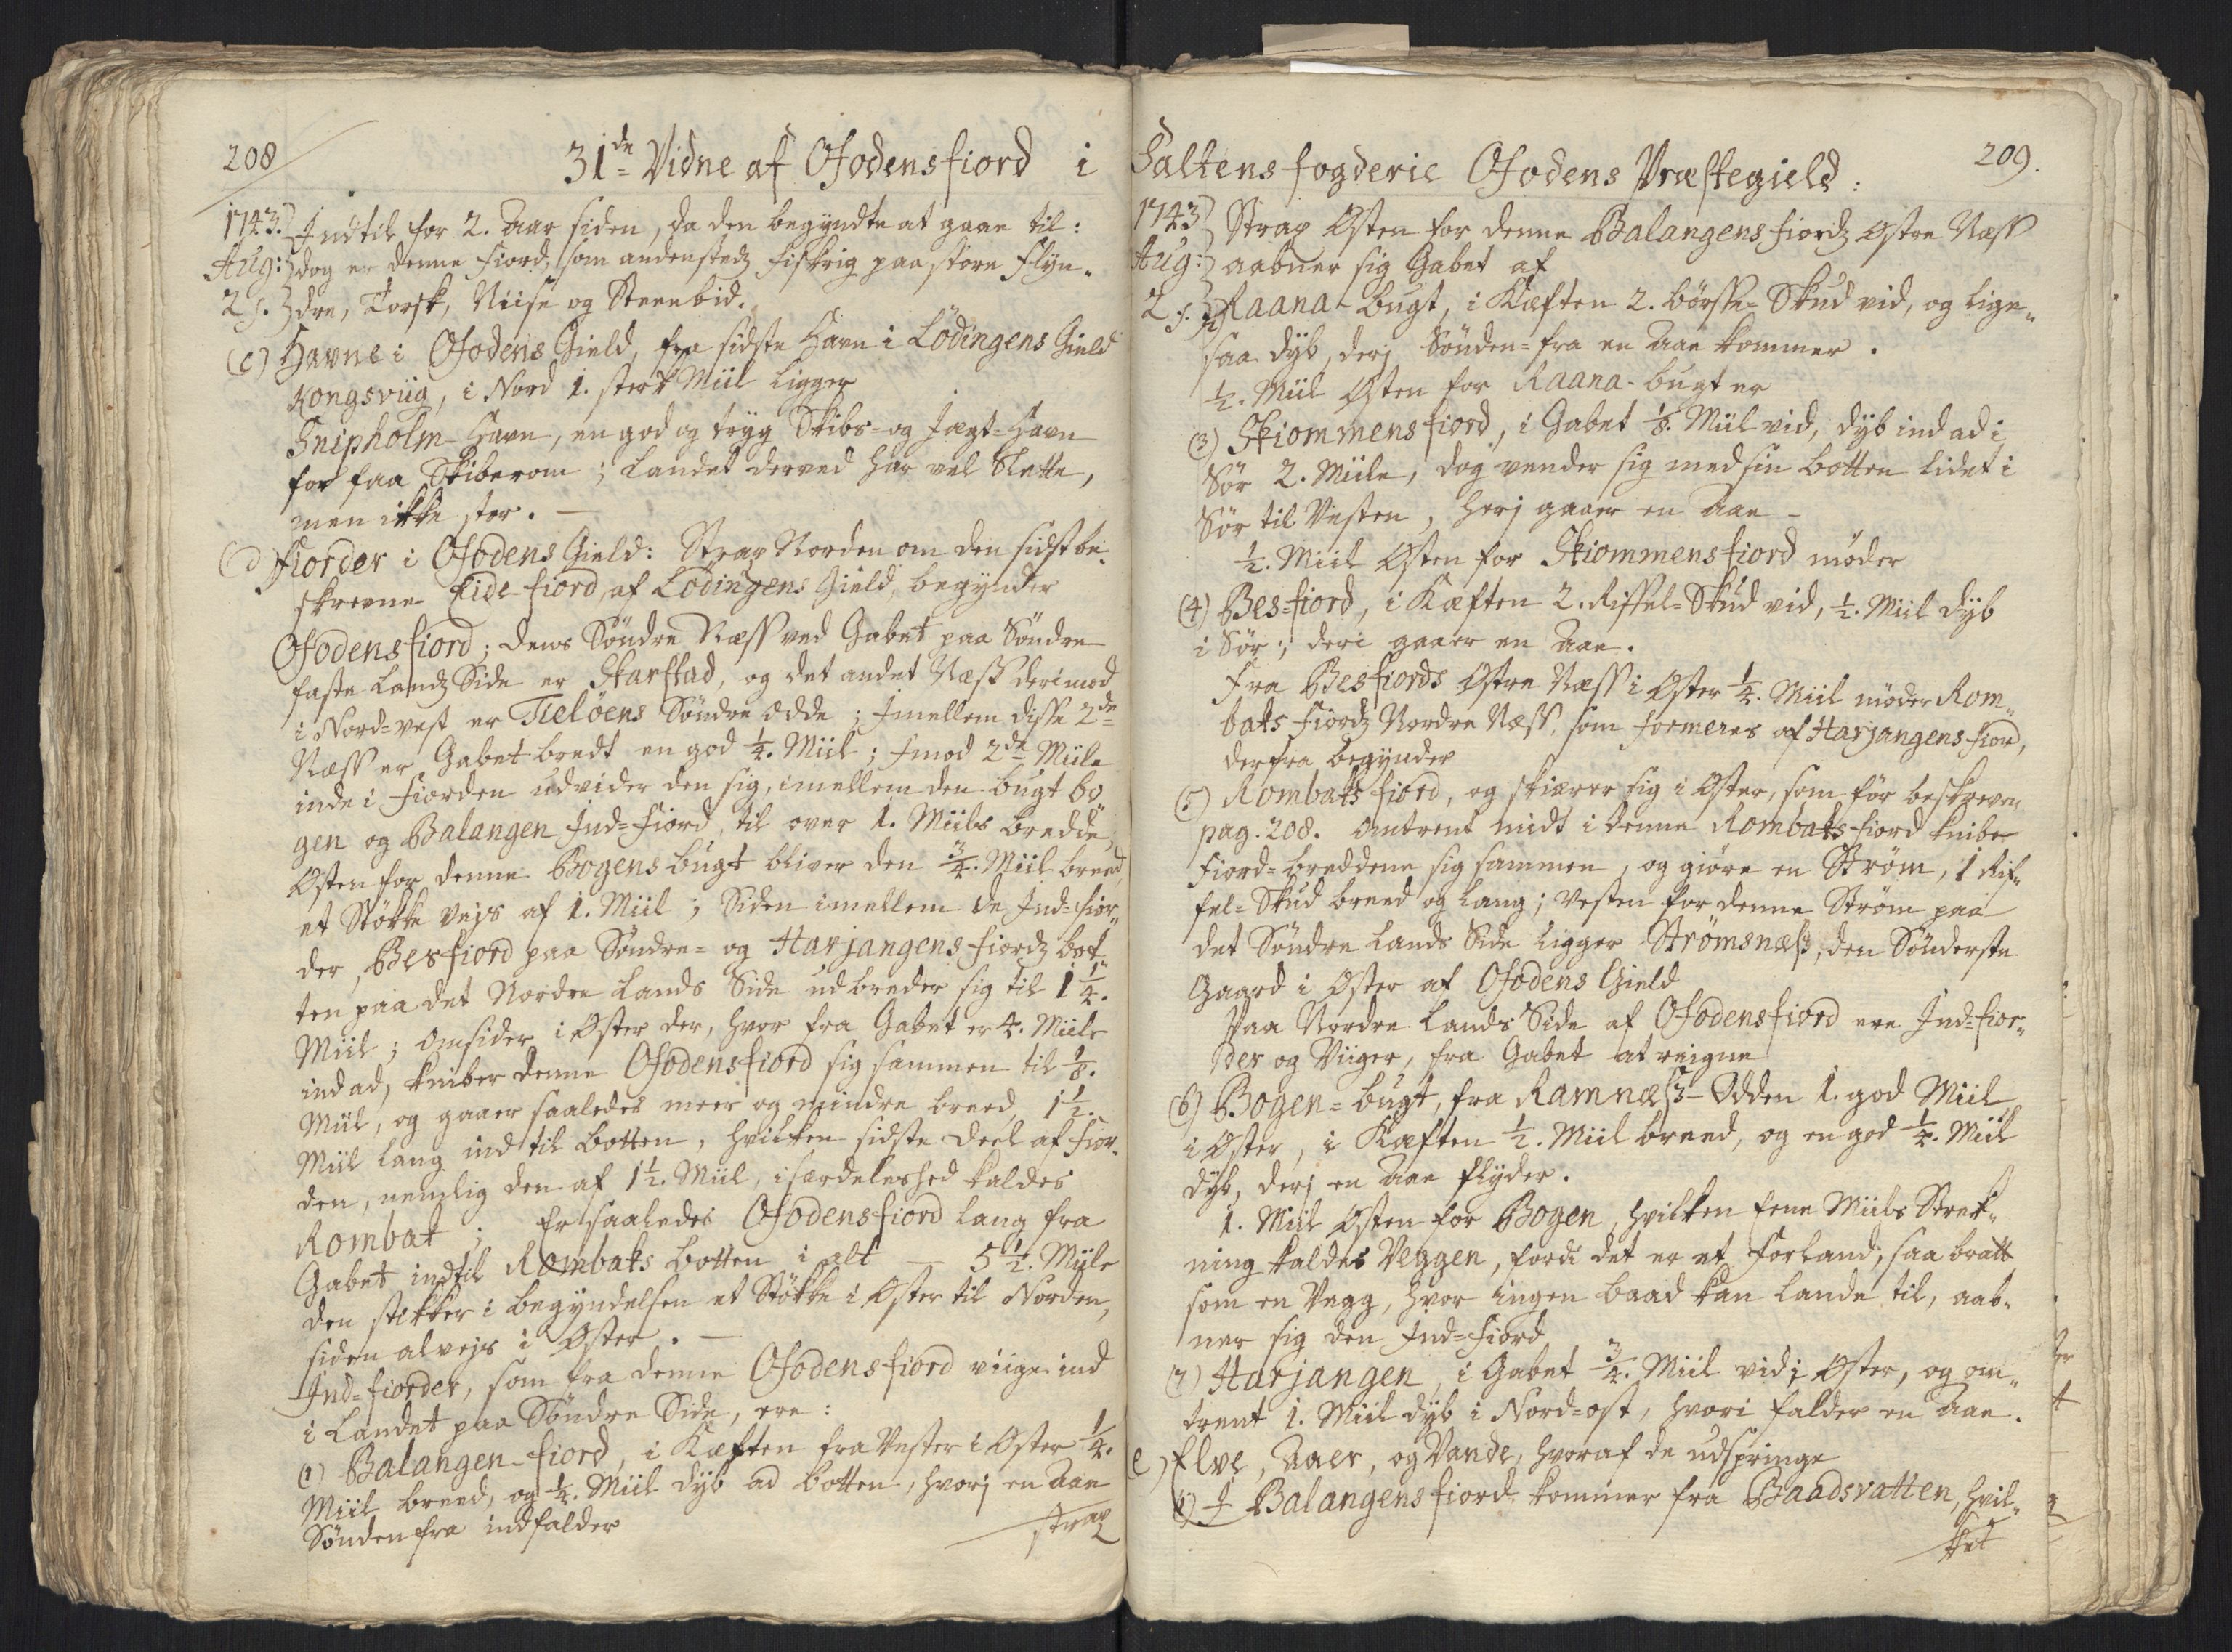 208
31de Vidne af Ofodensfiord i
1743. Indtil for 2. Aar siden, da den begyndte at gaae til:
Aug: dog er denne Fiord, som andenstedz fiskrig paa store Flyn„
2 s. dre, Torsk, Niise og Steenbid.
(c) Havne i Ofodens Gield, fra sidste Havn i Lödingens Gield
Kongsviig, i Nord 1. sterk Miil ligger
Snipholm-Havn, en god og tryg Skibs- og Jægt-Havn
for faa Skiberom; Landet derved har vel Slette,
men ikke stor. —
(d) Fiorder i Ofodens Gield: Strax Norden om den sidst be„
skrevne Eide-fiord, af Lödingens Gield, begynder
Ofodensfiord; dens Söndre Næss ved Gabet paa Söndre
faste Landz Side er Skarstad, og det andet Næss derimod
i Nord-vest er Tieløens Söndre Odde; Imellem disse 2de
Næss er Gabet bredt en god ¼. Miil; Imod 2de Miile
inde i Fiorden udvider den sig, imellem den bugt Bo„
gen og Balangen Ind-Fiord, til over 1. Miils bredde,
Østen for denne Bogens bugt bliver den ¾. Miil breed,
et Støkke vejs af 1. Miil; Siden imellem de Ind-fior„
der, Besfiord paa Söndre- og Harjangens fiordz bot„
ten paa det Nordre Lands Side udbreder sig til 1¼.
Miil; omsider i Øster der, hvor fra Gabet er 4. Miile
ind ad, kniber denne Ofodensfiord sig sammen til ⅛.
Miil, og gaaer saaledes meer og mindre breed, 1½.
Miil lang ind til botten, hvilken sidste Deel af Fior„
den, nemlig den af 1½. Miil, i særdeleshed kaldes
Rombak; Er saaledes Ofodensfiord lang fra
Gabet indtil Rombaks botten i alt — 5½. Miile
den stikker i begyndelsen et Støkke i Øster til Norden,
siden alvejs i Øster. —
Ind-fiorder, som fra denne Ofodensfiord viige ind
i Landet paa Söndre Side, ere:
(1) Balangen-fiord, i Kæften fra Vester i Øster ¼.
Miil breed, og ¼. Miil dyb ad botten, hvorj en Aae
Sönden fra indfalder
strax
Saltens fogderie Ofodens Præstegield:
209.
1743 Strax Østen for denne Balangens fiordz Østre Næss
Aug: aabner sig Gabet af
2 s. (2) Raana-bugt, i Kæften 2. børsse-Skud vid, og lige„
saa dyb, derj Sönden-fra en Aae kommer.
½. Miil Østen for Raana-bugt er
(3) Skiommensfiord, i Gabet ⅛. Miil vid, dyb ind ad i
Sör 2. Miile, dog vender sig med sin botten lidet i
Sör til Vesten, herj gaaer en Aae —
½. Miil Østen for Skiommensfiord møder
(4) Bes-fiord, i Kæften 2. Riffel-Skud vid, ½. Miil dyb
i Sör; deri gaaer en Aae.
Fra Besfiords Østre Næss i Øster ¼. Miil møder Rom„
baks fiordz Nordre Næss, som formeres af Harjangens fiord,
derfra begynder
(5) Rombaks fiord, og skiærer sig i Øster, som før beskreven
pag. 208. Omtrent midt i denne Rombaks-fiord knibe
Fiord-breddene sig sammen, og giøre en Strøm, 1 Rif„
fel-Skud breed og lang; Vesten for denne Strøm paa
det Söndre Lands Side ligger Strømsnæss, den Sönderste
Gaard i Øster af Ofodens Gield
Paa Nordre Lands Side af Ofodensfiord ere Ind-fior„
der og Viiger, fra Gabet at reigne
(6) Bogen-bugt, fra Ramnæss-Odden 1. god Miil
i Øster, i Kæften ½. Miil breed, og en god ¼. Miil
dyb, derj en Aae flyder.
1. Miil Østen for Bogen, hvilken Eene Miils Strek„
ning kaldes Veggen, fordi det er et Forland, saa bratt
som en Vegg, hvor ingen baad kan lande til, aab„
ner sig den Ind-Fiord
(7) Harjangen, i Gabet ¾. Miil vid i Øster, og om„
trent 1. Miil dyb i Nord-ost, hvori falder en Aae.
e) Elve, Aaer, og Vande, hvoraf de udspringe
(1) I Balangensfiord kommer fra Baadsvatten, hvil„
ket